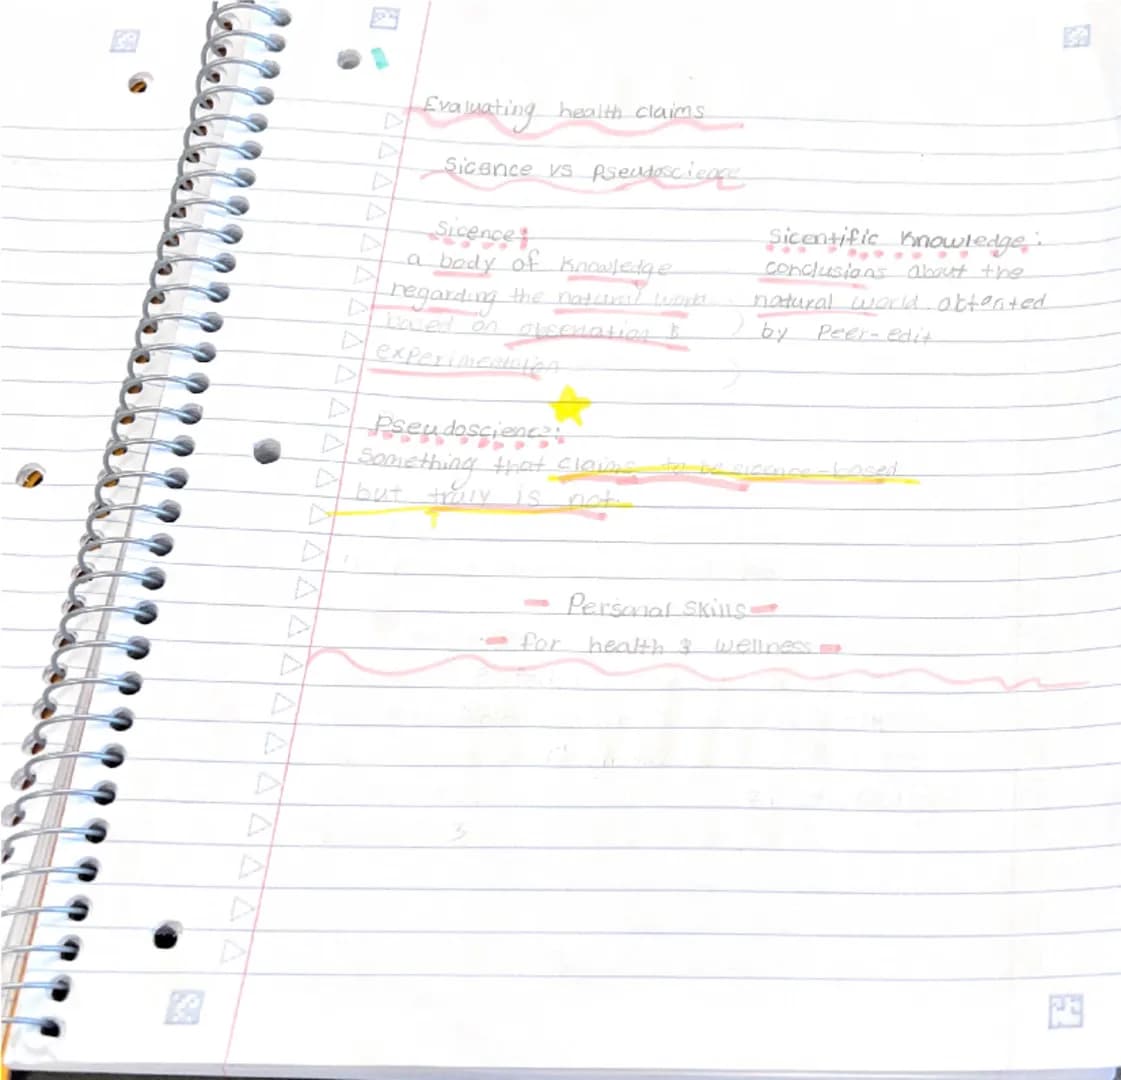 Evaluating health claims
Sicence vs Pseudoscience
Sicence:
a body of knowledge
regarding the natural world
based on observation &
experimentation
Sicentific Knowledge:
conclusions about the
natural world obtented
by Peer-edit
Pseudoscience:
Something that claims to be sicence-based
but truly is not.
- Personal Skills -
- for health & wellness -
3